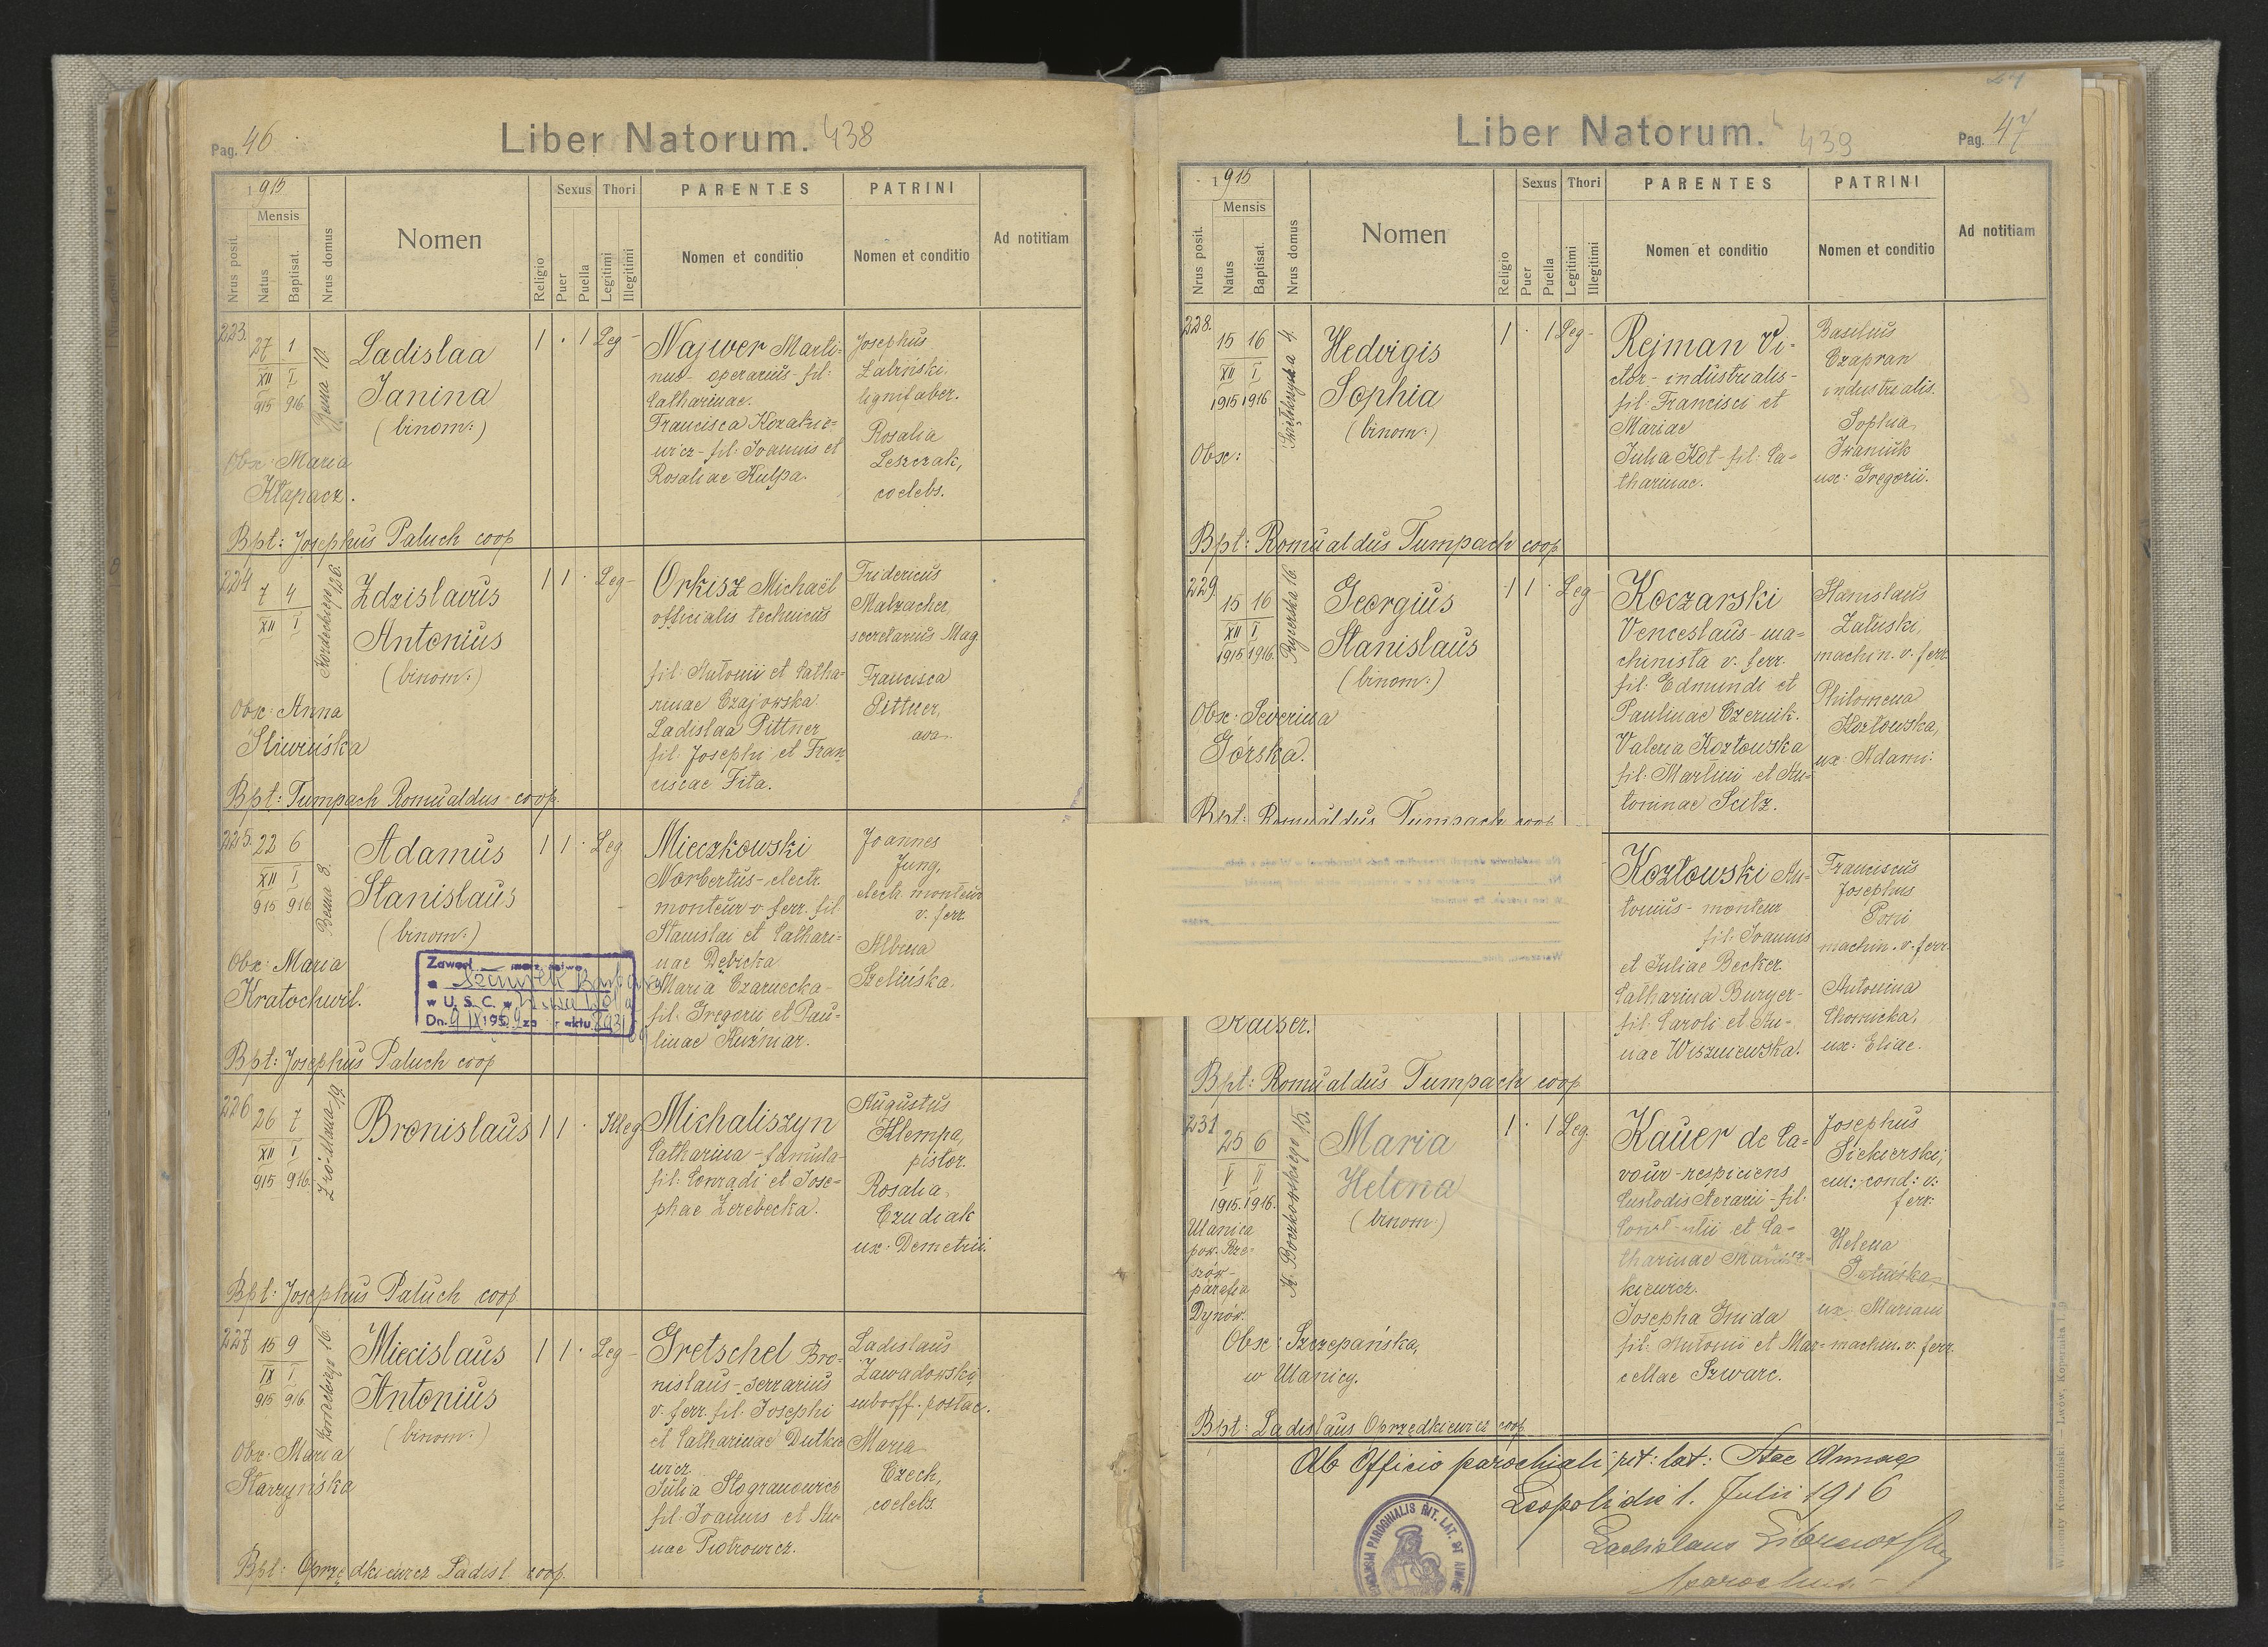 Pag. 46
Liber Natorum. 438
1915
Mensis
Nrus posit.
Natus
Baptisat.
Nrus domus
Nomen
Religio
Sexus
Puer
Puella
Thori
Legitimi
Illegitimi
PARENTES
Nomen et conditio
PATRINI
Nomen et conditio
Ad notitiam
223.
27 1
XII I
915 916
Bema 10.
Ladislaa
Janina
(binom:)
1 . 1 Leg-
Obx: Maria
Kłapacz.
Najwer Marti-
nus- operarius- fil:
Catharinae.
Francisca Kozakie-
wicz- fil: Joannis et
Rosaliae Kulpa.
Josephus
lignifaber.
Rosalia
Leszczak,
coelebs.
Bpt: Josephus Paluch coop
224
7 4
XII I
Kordeckiego 26.
Zdzislaus
Antonius
(binom:)
1 1 . Leg-
Obx: Anna
Śliwińska
Orkisz Michaël
officialis technicus
fil: Antonii et Catha-
rinae Czajowska
Ladislaa Pittner
fil: Josephi et Fran
ciscae Fita.
Fridericus
Malzacher,
secretarius Mag.
Francisca
Pittner,
ava.
Bpt: Tumpach Romualdus coop.
225.
22 6
XII I
915 916
Bema 8.
Adamus
Stanislaus
(binom:)
1 1 . Leg
Obx: Maria
Kratochwil.
Mieczkowski
Norbertus- electr.
monteur v. ferr. fil
Stanislai et Cathari-
nae Dębicka
Maria Czarnecka-
fil: Gregorii et Pau-
linae Kuźniar.
Joannes
Jung,
electr. monteur
v. ferr
Albina
Szelińska.
Zawarł małżeństwo
w U. S. C. w
Dn. 9 IX 1959 za nr aktu
Bpt: Josephus Paluch coop
226
26 7
XII I
915 916.
Bronislaus
1 1 . Illeg
Michaliszyn
Catharina- famula-
fil: Conradi et Jose-
phae Zerebecka.
Augustus
Klempa,
pistor.
Rosalia
Czudiak
ux: Demetrii.
Bpt: Josephus Paluch coop
227
15 9
IX I
915 916
Kordeckiego 16.
Miecislaus
Antonius
(binom:)
1 1 . Leg-
Obx: Maria
Starzyńska
Gretschel Bro-
nislaus- serrarius
v. ferr. fil: Josephi
et Catharinae Dutkie
wicz.
Julia
fil: Joannis et An-
nae Piotrowicz.
Ladislaus
Zawadowski,
suboff. postae.
Maria
Czech,
coelebs.
Bpt: Oprzędkiewicz Ladisl coop.
Liber Natorum. 439
Pag. 47
1915
Mensis
Nrus posit.
Natus
Baptisat.
Nrus domus
Nomen
Religio
Sexus
Puer
Puella
Thori
Legitimi
Illegitimi
PARENTES
Nomen et conditio
PATRINI
Nomen et conditio
Ad notitiam
228.
15 16
XII I
1915 1916
Hedvigis
Sophia
(binom:)
1 . 1 Leg-
Obx:
Rejman Vi-
ctor- industrialis-
fil: Francisci et
Mariae
Julia Kot- fil: Ca-
tharinae.
Basilius
Czapran
industrialis.
Sophia
Iwaniuk
ux: Gregorii.
Bpt: Romualdus Tumpach coop
229.
15 16
XII I
1915 1916.
Georgius
Stanislaus
(binom:)
1 1 . Leg-
Obx: Severina
Górska.
Koczarski
Venceslaus- ma-
chinista v. ferr.
fil: Edmundi et
Paulinae Czernik.
Valeria Kozłowska
fil: Martini et An-
toninae Seitz.
Stanislaus
Załuski,
machin. v. ferr
Philomena
Kozłowska,
ux: Adami.
Bpt: Romualdus Tumpach coop
Kaiser.
Kozłowski An-
tonius- monteur
fil: Joannis
et Juliae Becker.
Catharina Burger-
fil: Caroli et An-
nae Wiszniewska.
Franciscus
Josephus
machin. v. ferr.
Antonina
ux: Eliae.
Bpt: Romualdus Tumpach coop
231
25 6
V II
1915. 1916.
K. Boczkowskiego 15.
Maria
Helena
(binom:)
1 . 1 Leg.
Ulanica
pow. Rze-
szów-
parafia
Dynów.
Obx: Szczepańska,
w Ulanicy.
Kauer de Ca-
vour- respiciens
Custodis Aerarii- fil:
et Ca-
tharinae
kiewicz.
Josepha Gnida
fil: Antonii et Mar-
cellae Szwarc.
Josephus
Siekierski,
em: cond: v:
ferr:
Helena
ux: Mariani
machin. v. ferr.
Bpt: Ladislaus Oprzędkiewicz coop
Ab Officio parochiali rit: lat: Stae Annae
Leopoli die 1. Julii 1916
Ladislaus
parochus.-
PAROCHIALIS RIT. LAT. ST ANNAE